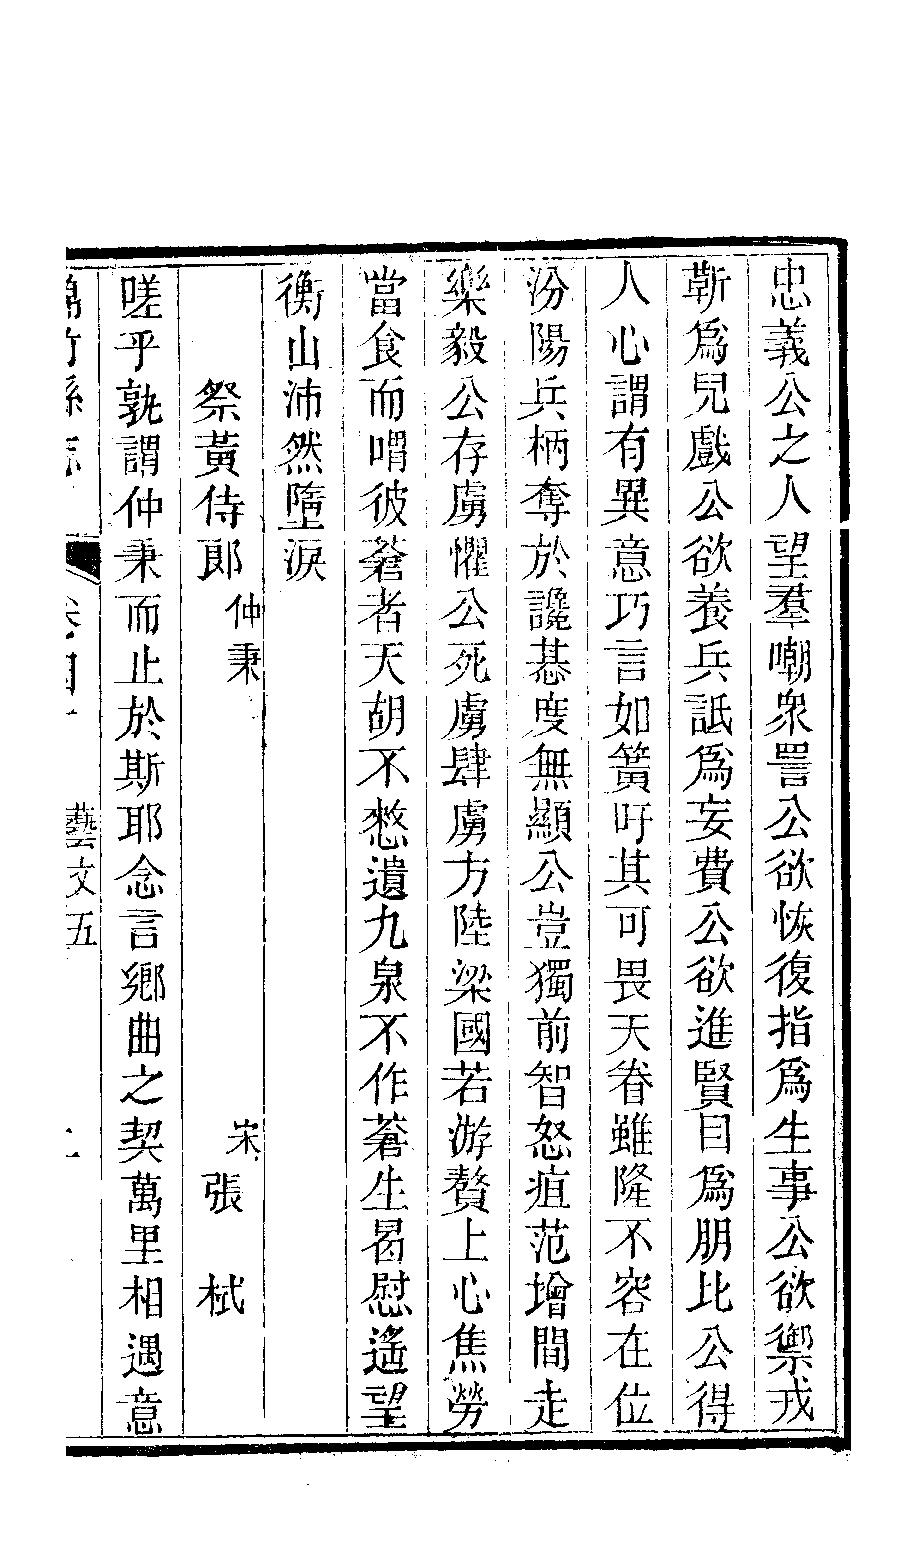 忠義公之人望羣嘲衆詈公欲恢復指爲生事公欲禦戎
靳爲兒戲公欲養兵詆爲妄費公欲進賢目爲朋比公得
人心謂有異意巧言如簧吁其可畏天眷雖隆不容在位
汾陽兵柄奪於讒惎度無顯公豈獨前智怒疽范增間走
樂毅公存虜懼公死虜肆虜方陸梁國若游贅上心焦勞
當食而喟彼蒼者天胡不憗遺九泉不作蒼生曷慰遙望
衡山沛然墮淚
祭黃侍郎仲秉 宋張栻
嗟乎孰謂仲秉而止於斯耶念言鄉曲之契萬里相遇意
竹縣志 卷四十 藝文五